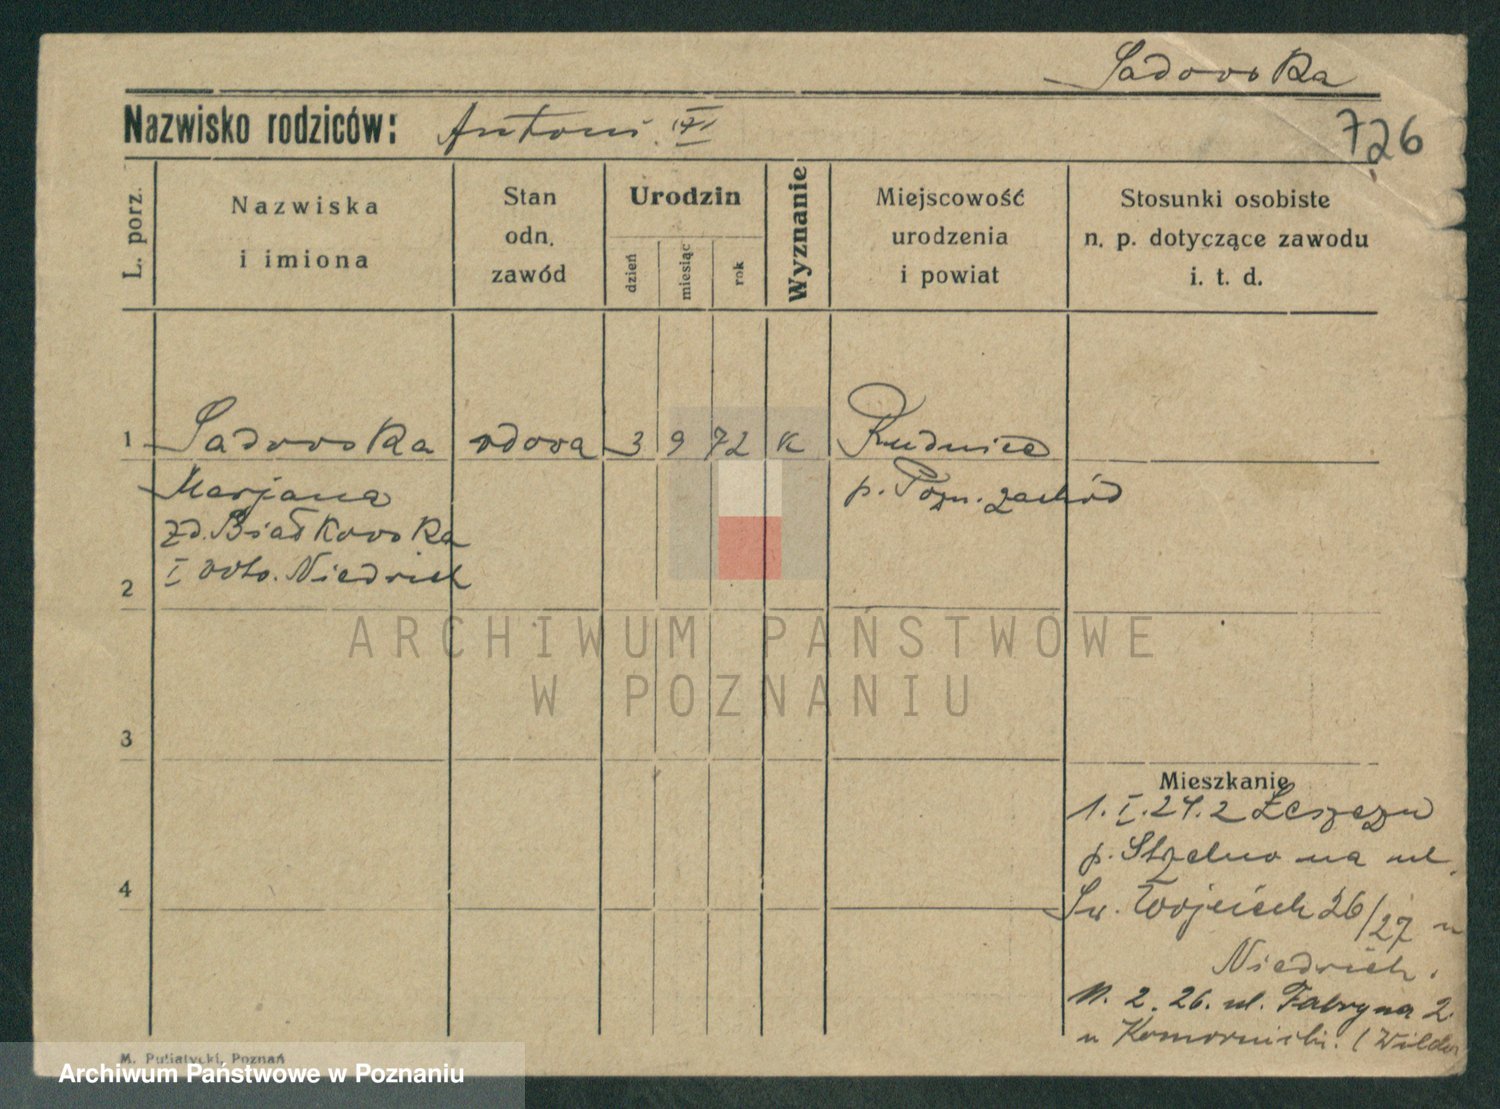 Sadowska
Nazwisko rodziców: Antoni
726
L. porz.
Nazwiska
i imiona
Stan
odn.
zawód
Urodzin
dzień
miesiąc
rok
Wyznanie
Miejscowość
urodzenia
i powiat
Stosunki osobiste
n. p. dotyczące zawodu
i. t. d.
1 Sadowska wdowa 3 9 72 K Rudnicze
Marjanna p. Pozn. zachód
zd. Białkowska
I voto. Niedrich
2
ARCHIWUM PAŃSTWOWE
W POZNANIU
3
Mieszkanie
1. I. 24. z
p. Strzelno na ul.
4
Św. Wojciech 26/27 u
Niedrich.
11. 2. 26. ul. Fabryczna 2.
u Komornicki. (Wilda
M. Putiatycki, Poznań
Archiwum Państwowe w Poznaniu